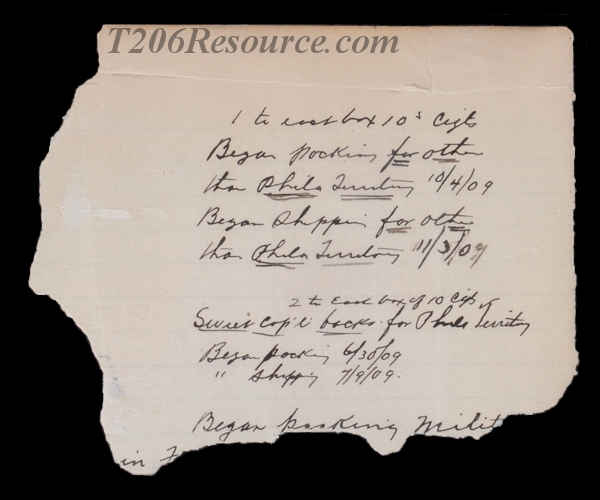 T206Resource.com
1 to each box 10s Cigts
Began packing for other
than Phila Territory 10/4/09
Began Shipping for other
than Phila Territory 11/3/09
2 to each box of 10 Cigts of
Sweet Cap'l backs for Phila Territory
Began packing 6/30/09
" Shipping 7/9/09.
Began packing Milit
in